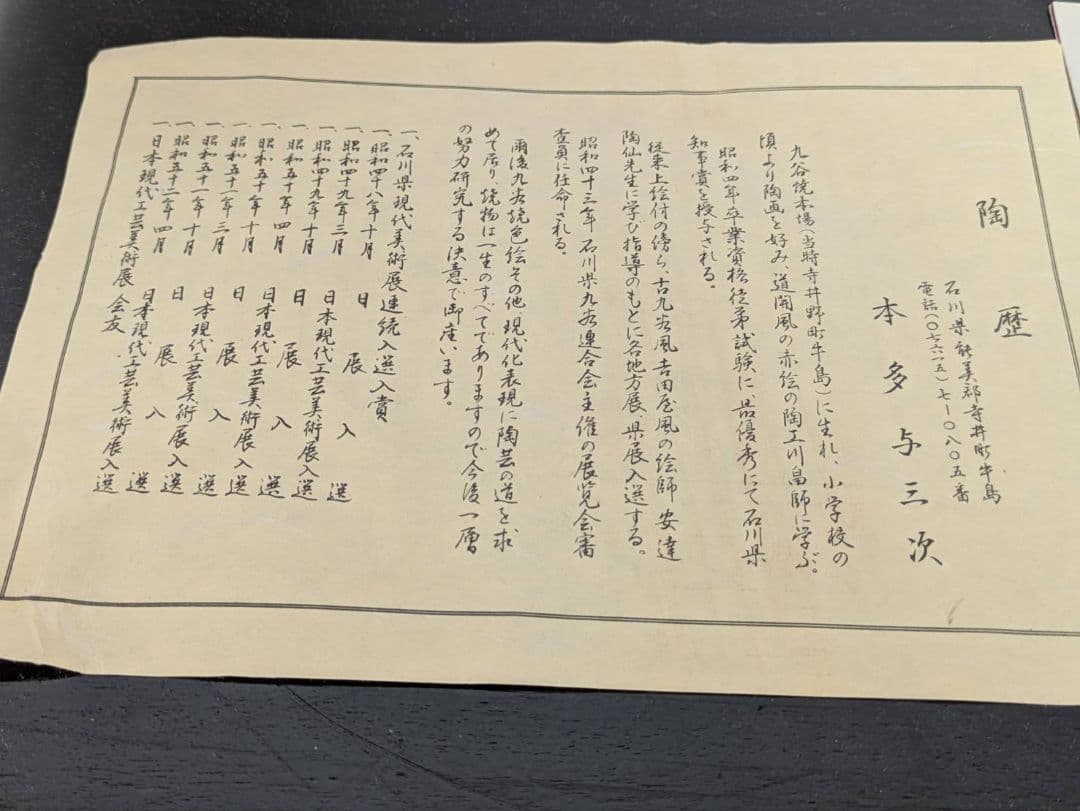 陶歴
石川県能美郡寺井町牛島
電話(〇七六一五)七ー〇八〇五番
本多与三次
九谷焼本場(当時寺井野町牛島)に生れ、小学校の
頃より陶画を好み道開風の赤絵の陶工川畠師に学ぶ。
昭和四年卒業資格徒弟試験に最優秀にて石川県
知事賞を授与される。
従来上絵付の傍ら、古九谷風吉田屋風の絵師安達
陶仙先生に学び指導のもとに各地方展、県展入選する。
昭和四十三年石川県九谷連合会主催の展覧会審
査員に任命される。
爾後九谷焼色絵その他、現代化表現に陶芸の道を求
めて居り、焼物は一生のすべてでありますので今後一層
の努力研究する決意で御座います。
一、石川県現代美術展連続入選入賞
一、昭和四十八年十月 日展入選
一、昭和四十九年三月 日本現代工芸美術展入選
一、昭和四十九年十月 日展入選
一、昭和五十年四月 日本現代工芸美術展入選
一、昭和五十年十月 日展入選
一、昭和五十一年三月 日本現代工芸美術展入選
一、昭和五十一年十月 日展入選
一、昭和五十二年四月 日本現代工芸美術展入選
一、日本現代工芸美術展会友